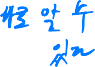 바로 알 수
있고